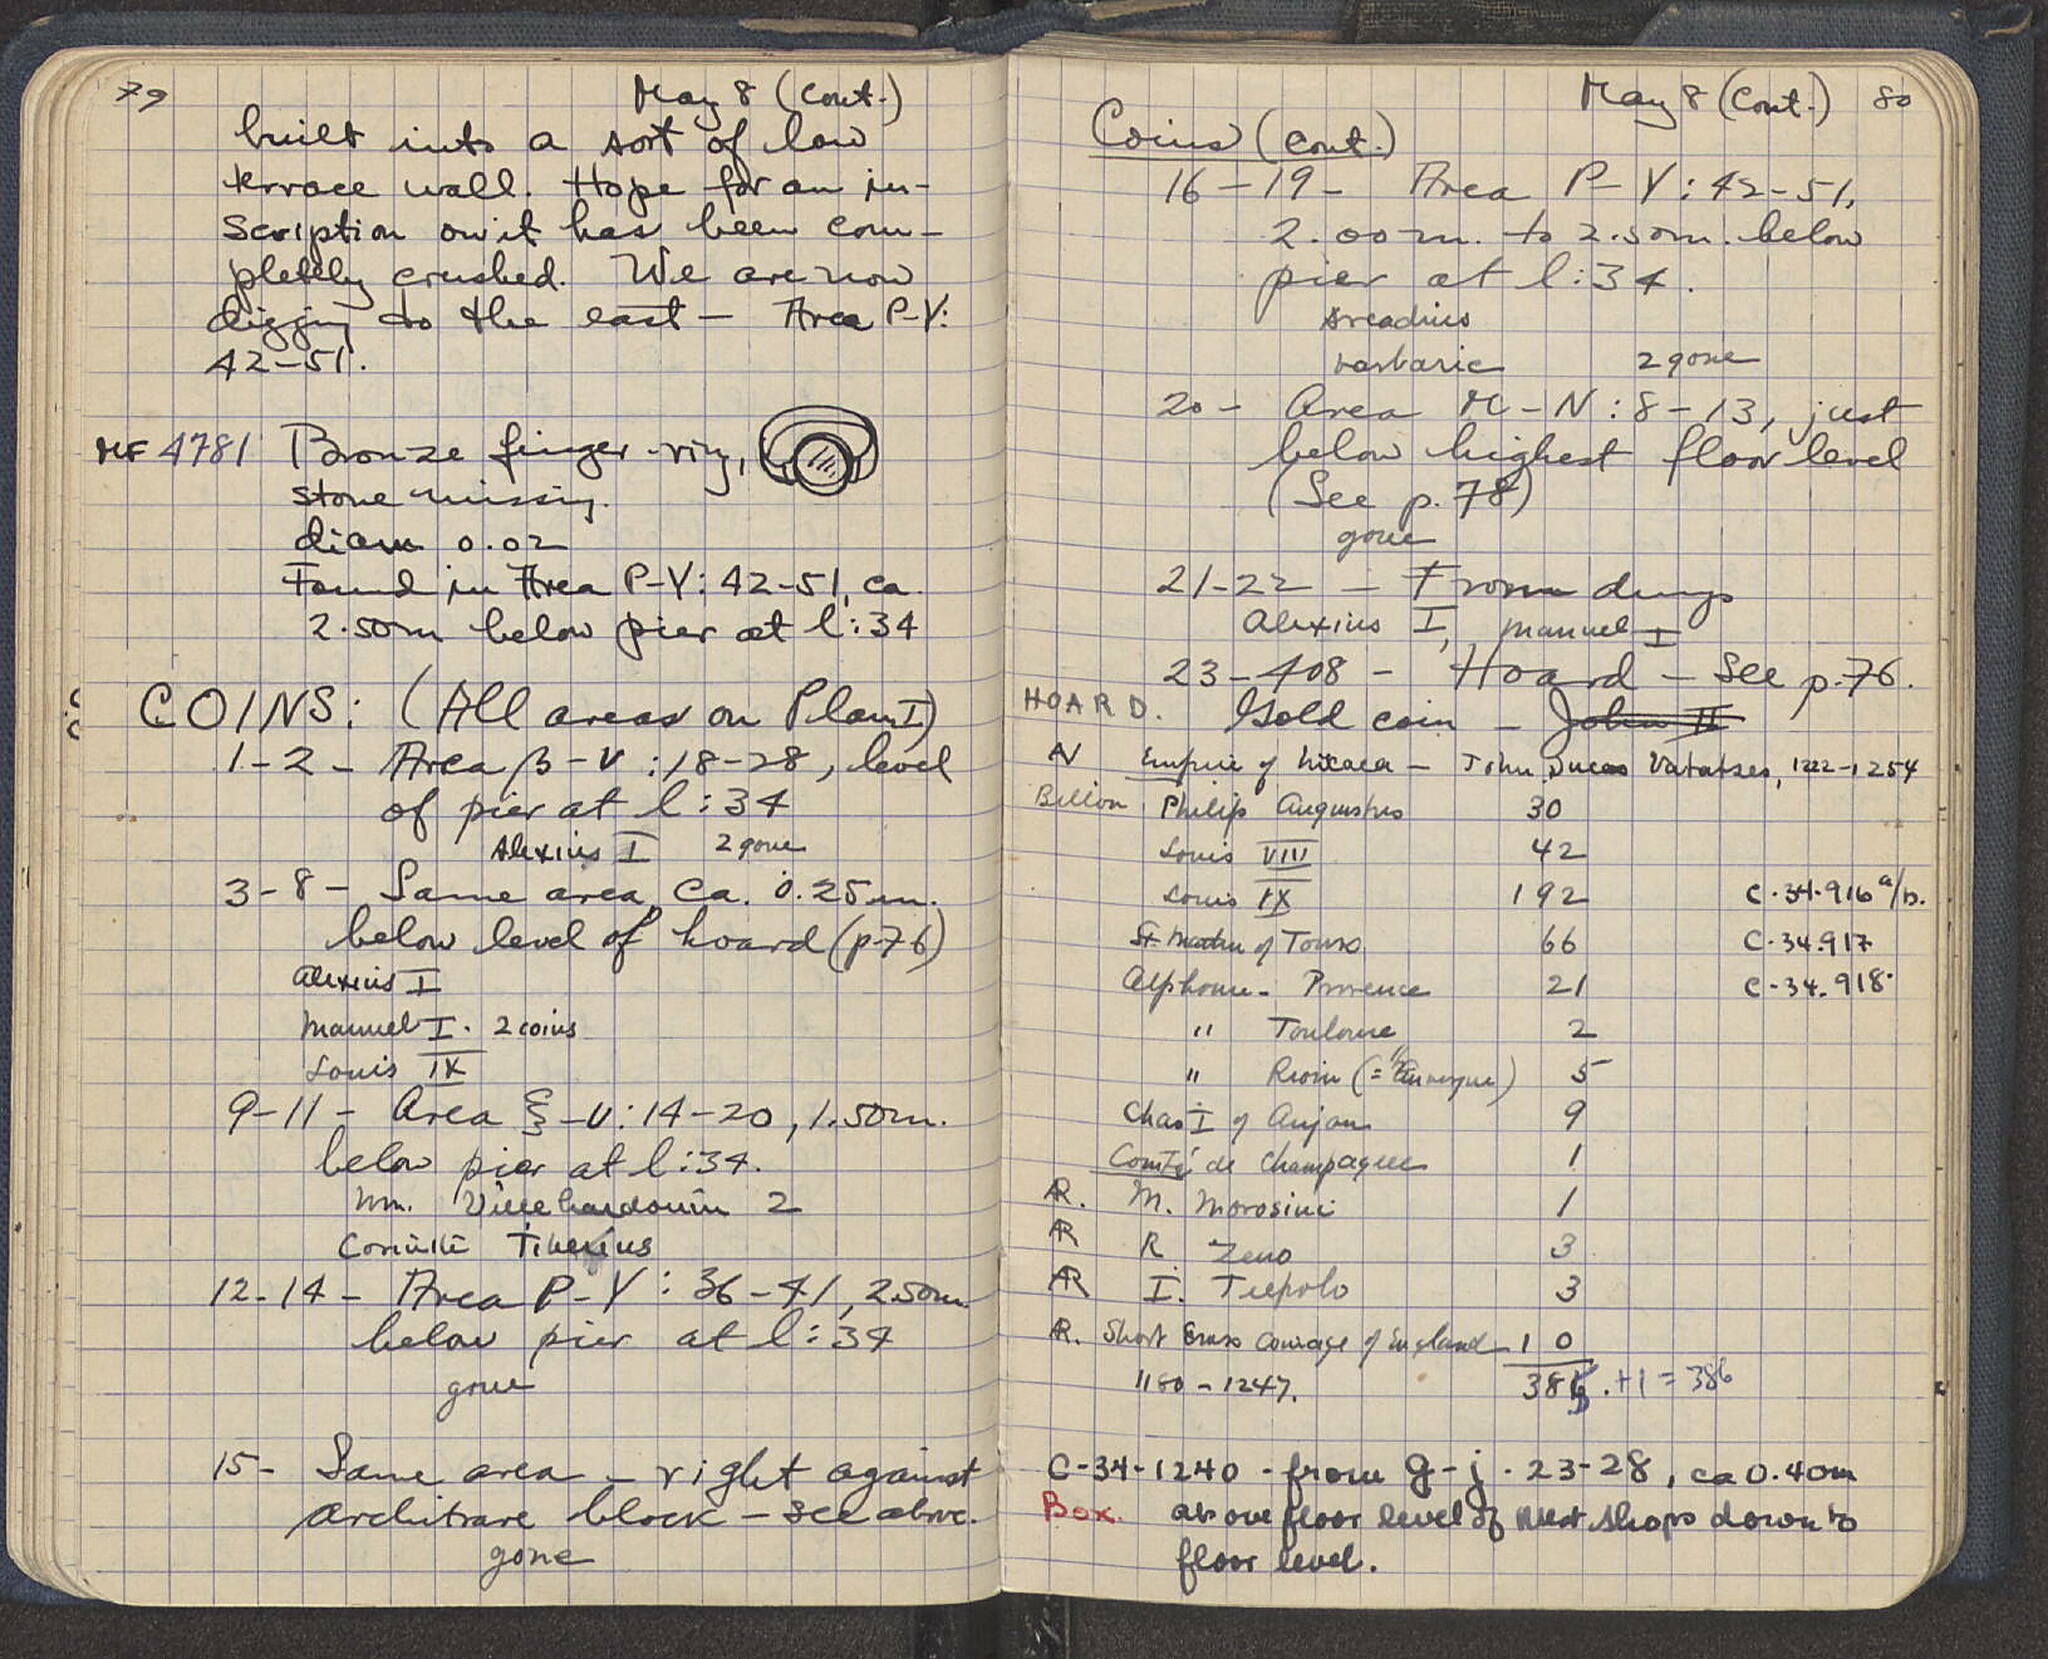 79
May 8 (Cont.)
built into a sort of low
terrace wall. Hope for an in-
scription on it has been com-
pletely crushed. We are now
digging to the east — Area P-Y:
42-51.
MF 4781 Bronze finger-ring,
stone missing.
diam 0.02
Found in Area P-Y: 42-51, ca.
2.50m below pier at l:34
COINS: (All areas on Plan I)
1-2 - Area β-V:18-28, level
of pier at l:34
Alexius I 2 gone
3-8 - Same area, ca. 0.25m.
below level of hoard (p.76)
Alexius I
Manuel I. 2 coins
Louis IX
9-11 - Area ξ-V:14-20, 1.50m.
below pier at l:34.
Wm. Villehardouin 2
Corinth Tiberius
12-14 - Area P-Y: 36-41, 2.50m.
below pier at l:34
gone
15- Same area — right against
architrave block — see above.
gone
May 8 (Cont.) 80
Coins (Cont.)
16-19 - Area P-Y: 42-51,
2.00m. to 2.50m. below
pier at l:34.
Arcadius
barbaric 2 gone
20 - Area M-N: 8-13, just
below highest floor level
(See p.78)
gone
21-22 - From dumps
Alexius I, Manuel I
23-408 - Hoard — See p.76.
HOARD. Gold coin — John II
AV Empire of Nicaea — John Ducas Vatatzes, 1222-1254
Billon Philip Augustus 30
Louis VIII 42
Louis IX 192 C.34.916 a/b.
St Martin of Tours 66 C.34.917
Alphonse - Provence 21 C-34.918.
" Toulouse 2
" Riom (= "Auvergne) 5
Chas I of Anjou 9
Comté de Champagne 1
AR. M. Morosini 1
AR R Zeno 3
AR I. Tiepolo 3
AR. Short Cross Coinage of England 10
1180-1247. 385 .+1 = 386
C-34-1240 - from g-j. 23-28, ca 0.40m
Box. above floor level of West Shops down to
floor level.